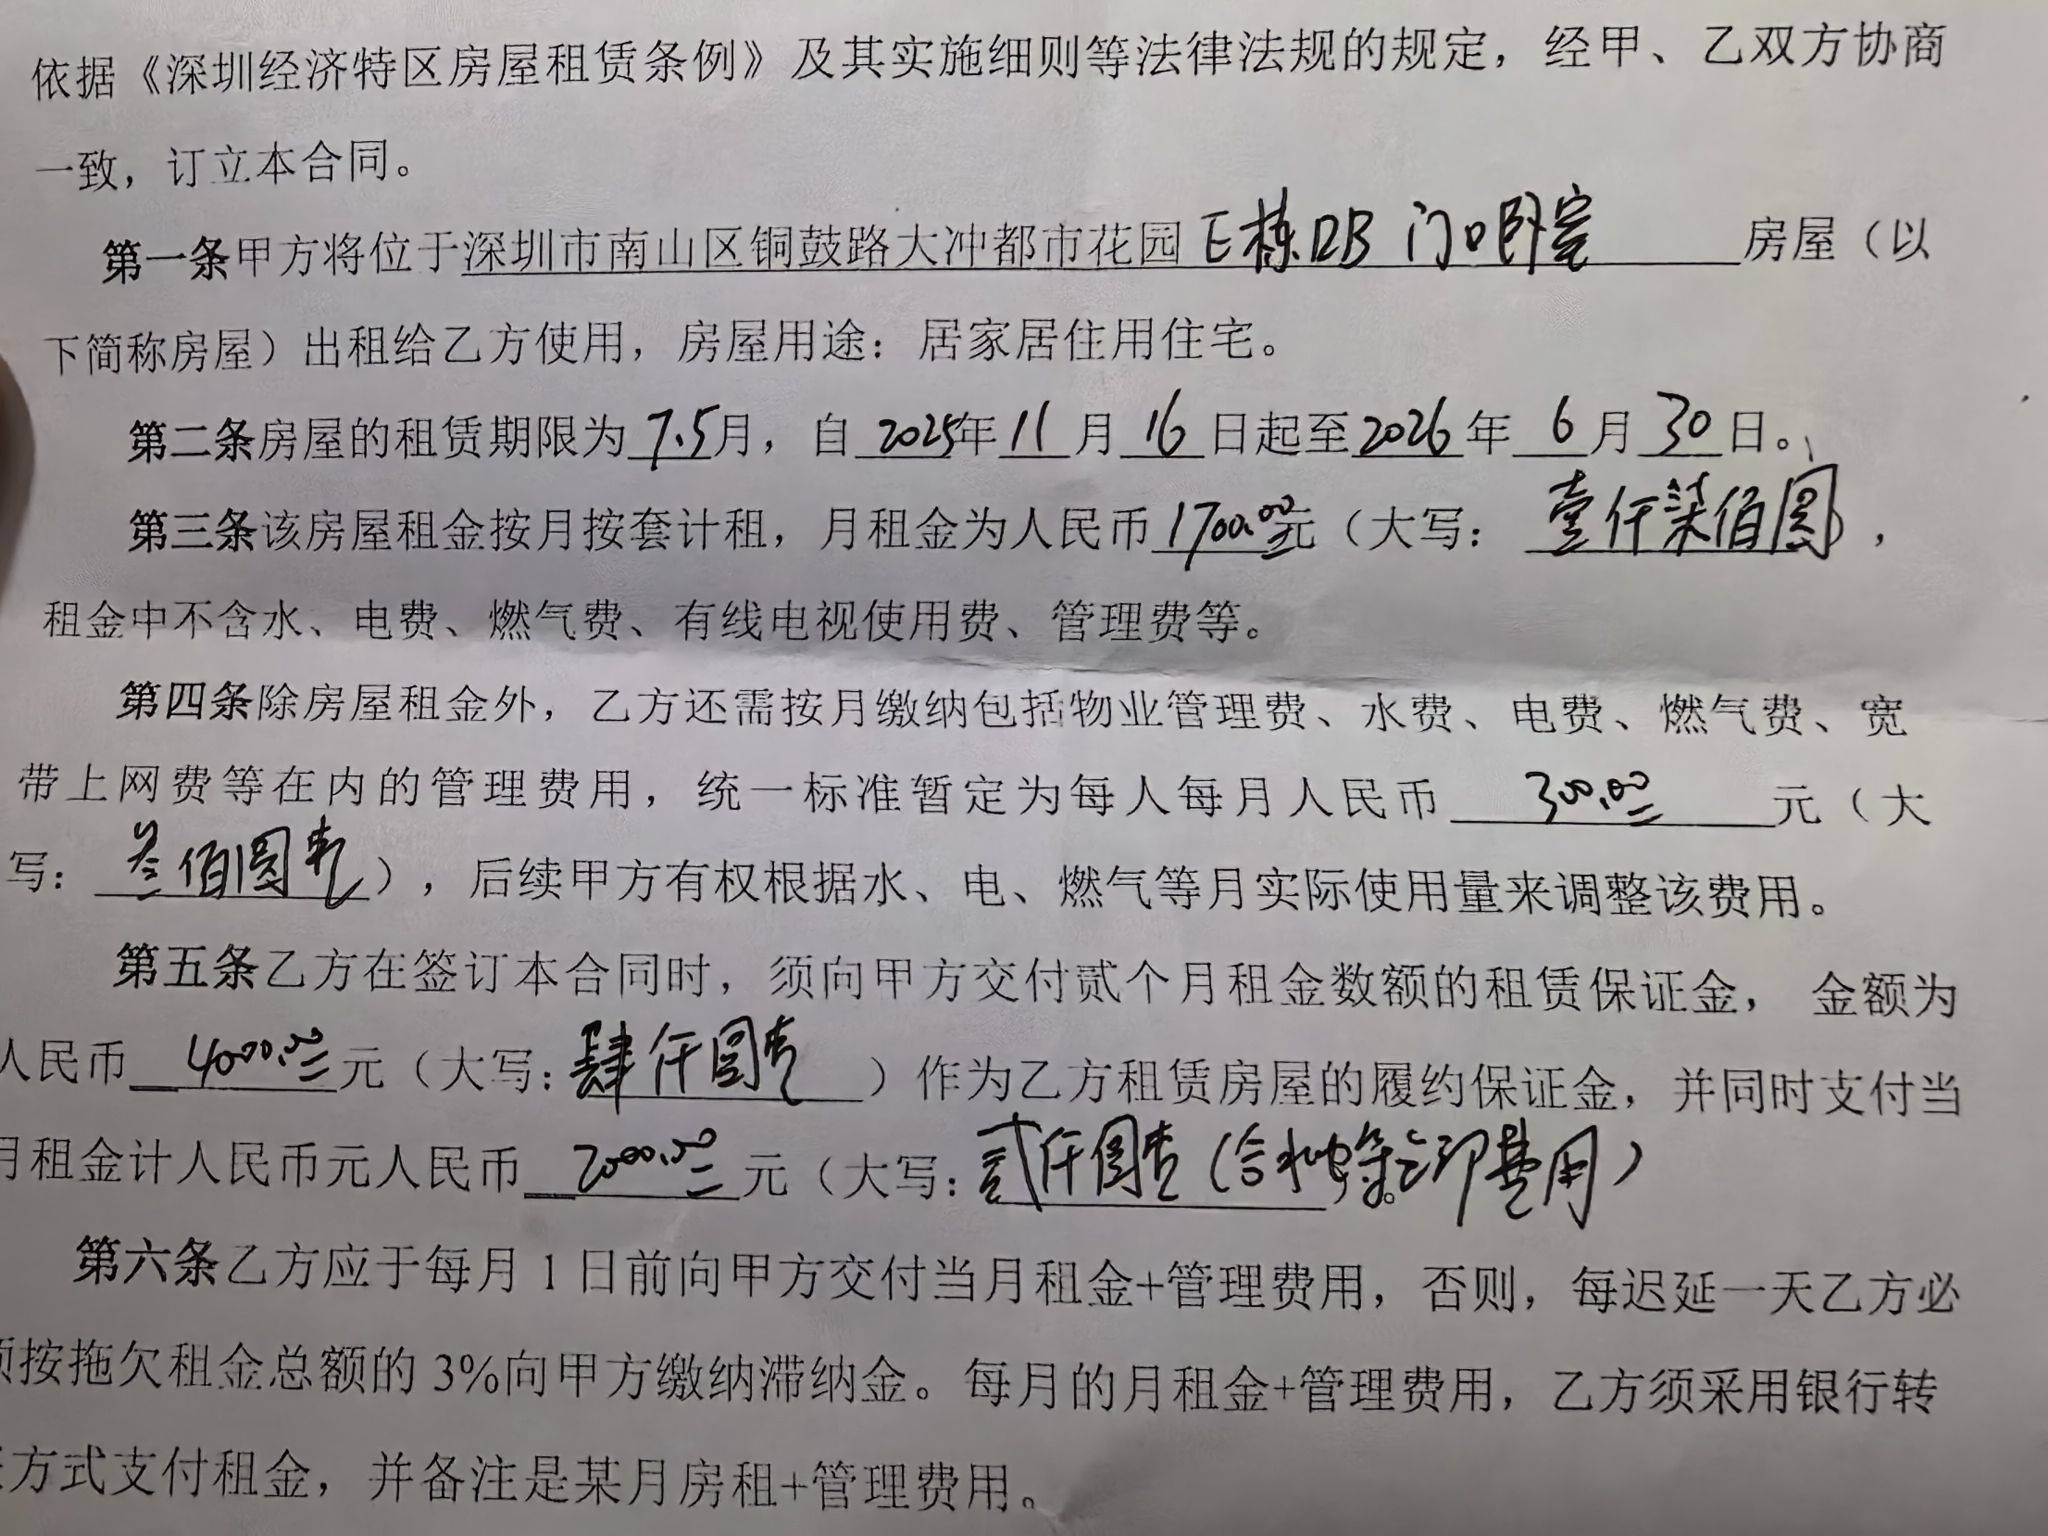 依据《深圳经济特区房屋租赁条例》及其实施细则等法律法规的规定，经甲、乙双方协商
一致，订立本合同。
第一条甲方将位于深圳市南山区铜鼓路大冲都市花园E栋 门口卧室房屋（以
下简称房屋）出租给乙方使用，房屋用途：居家居住用住宅。
第二条房屋的租赁期限为7.5月，自2025年11月16日起至2026年6月30日。
第三条该房屋租金按月按套计租，月租金为人民币1700.00元（大写：壹仟柒佰圆），
租金中不含水、电费、燃气费、有线电视使用费、管理费等。
第四条除房屋租金外，乙方还需按月缴纳包括物业管理费、水费、电费、燃气费、宽
带上网费等在内的管理费用，统一标准暂定为每人每月人民币300.00元（大
写：叁佰圆整），后续甲方有权根据水、电、燃气等月实际使用量来调整该费用。
第五条乙方在签订本合同时，须向甲方交付贰个月租金数额的租赁保证金， 金额为
人民币4000.00元（大写：肆仟圆整）作为乙方租赁房屋的履约保证金，并同时支付当
月租金计人民币元人民币2000.00元（大写：贰仟圆整（含水电 费用）
第六条乙方应于每月1日前向甲方交付当月租金+管理费用，否则，每迟延一天乙方必
须按拖欠租金总额的3%向甲方缴纳滞纳金。每月的月租金+管理费用，乙方须采用银行转
方式支付租金，并备注是某月房租+管理费用。